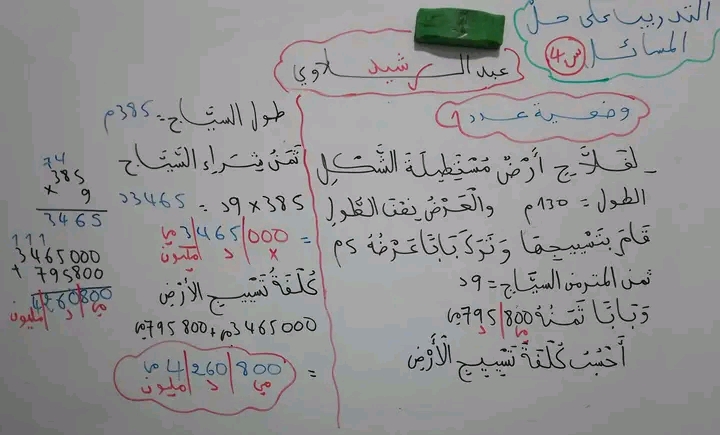 التدريب على حل
المسائل س4
عبد الرشيد لاوي
وضعية عدد 1
- لفلاح أرض مستطيلة الشكل
الطول = 130م والعرض نصف الطول
قام بتسييجها وترك بابا عرضه 5م
ثمن المتر من السياج = 9د
وبابا ثمنه 795|800مي
د مي
أحسب كلفة تسييج الأرض
طول السياج = 385م
ثمن شراء السياج
385 × 9د = 3465د
= 3|465|000مي
مليون د x
كلفة تسييج الأرض
3465000مي + 795800مي
= 4|260|800مي
مليون د مي
74
385
× 9
3465
111
3465000
+ 795800
4260800
مليون د مي